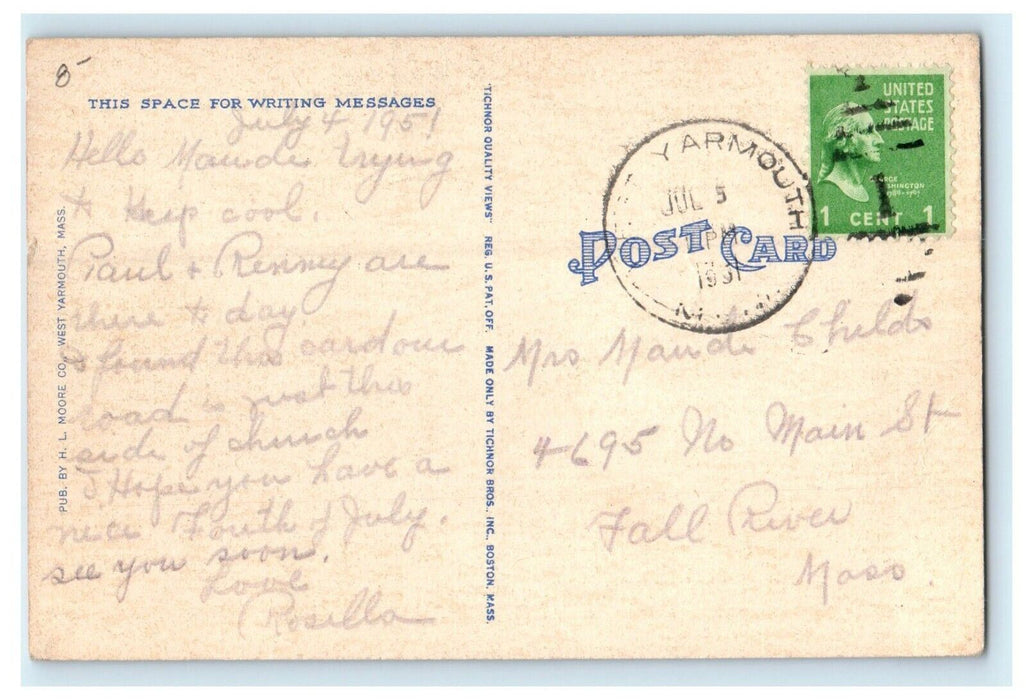 8-
THIS SPACE FOR WRITING MESSAGES
July 4 1951
Hello Maude trying
to keep cool.
Paul + Renny are
here to day
I found this card our
road is just this
side of church
I Hope you have a
nice Fourth of July.
see you soon.
Love
Rosilla
PUB. BY H. L. MOORE CO., WEST YARMOUTH, MASS.
"TICHNOR QUALITY VIEWS" REG. U.S. PAT. OFF. MADE ONLY BY TICHNOR BROS., INC., BOSTON, MASS.
YARMOUTH
JUL 5
PM
1951
POST CARD
UNITED
STATES
POSTAGE
1 CENT 1
Mrs Maude Childs
4695 No Main St
Fall River
Mass.